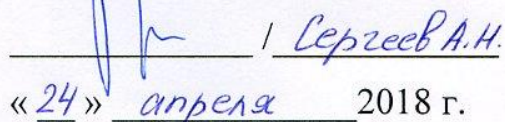 / Сергеев А.Н.
« 24 » апреля 2018 г.